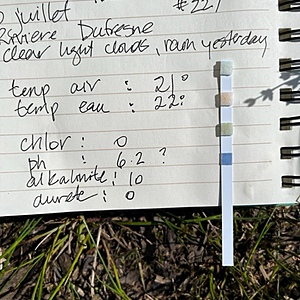 juillet #221
Rivière Dufresne
clear light clouds, rain yesterday
temp air : 21°
temp eau : 22°
chlor : 0
ph : 6.2 ?
alkalinité : 10
dureté : 0